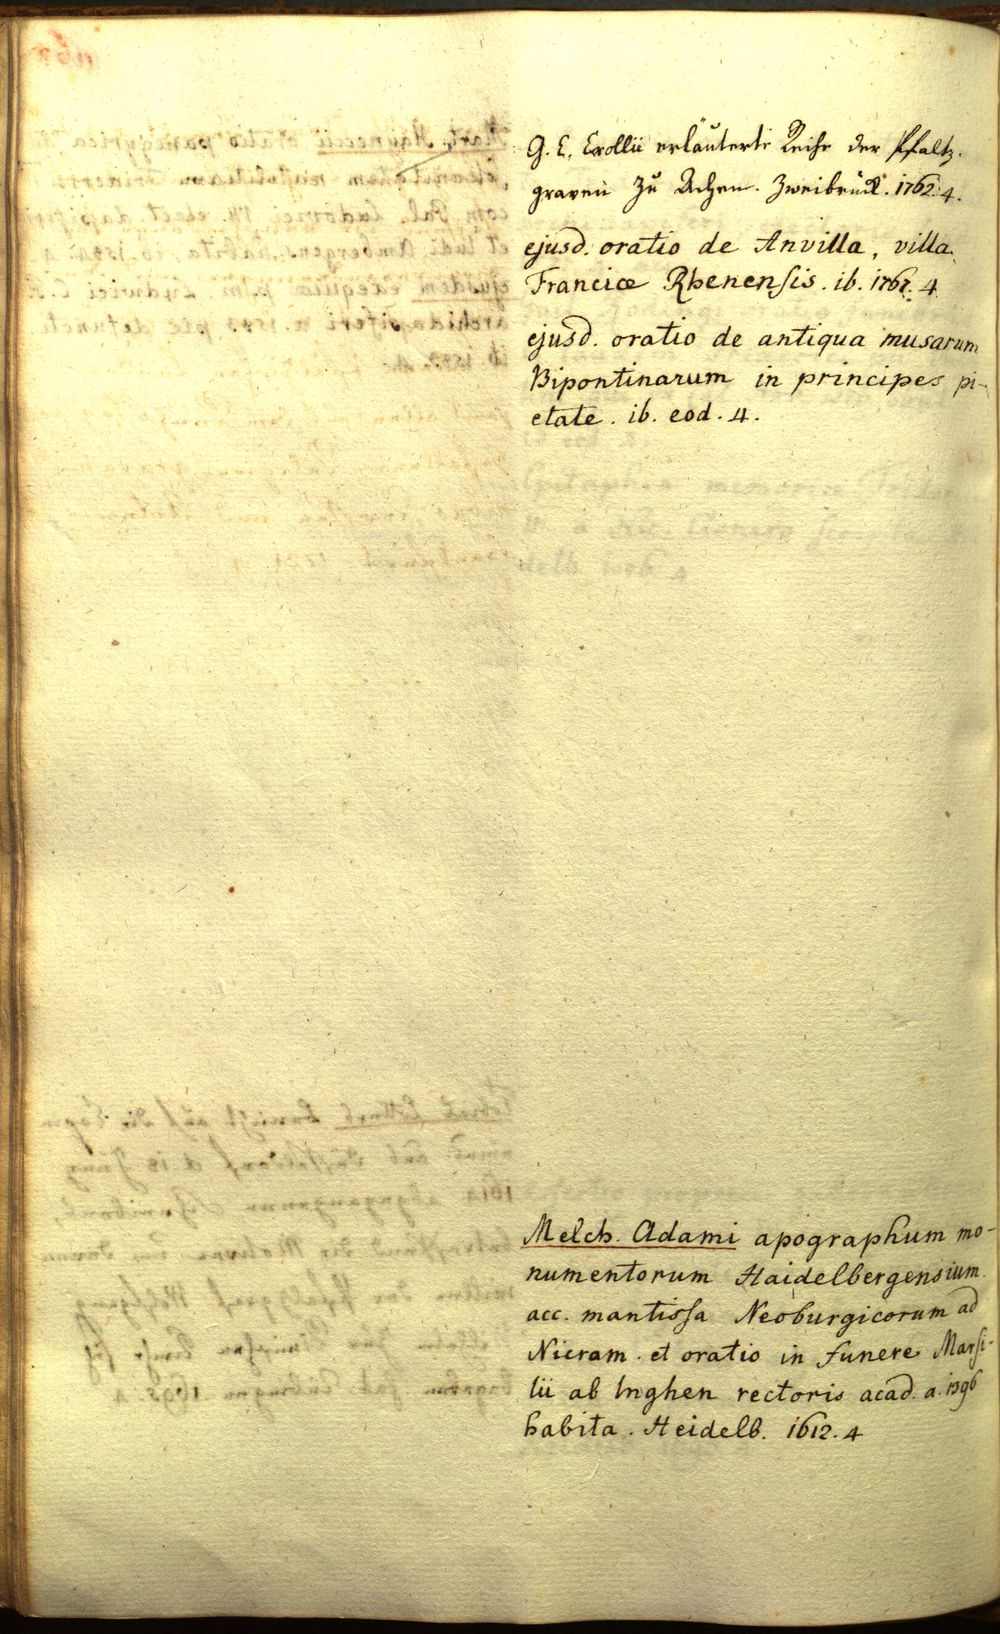 G. C. Crollii erläuterte Reihe der Pfaltz-
graven zu Achen. Zweibrück. 1762. 4.
ejusd. oratio de Anvilla, villa
Franciæ Rhenensis. ib. 1767. 4
ejusd. oratio de antiqua musarum
Bipontinarum in principes pi-
etate. ib. eod. 4.
Melch. Adami apographum mo-
numentorum Haidelbergensium.
acc. mantissa Neoburgicorum ad
Nicram. et oratio in funere Marsi-
lii ab Inghen rectoris acad. a. 1396
habita. Heidelb. 1612. 4